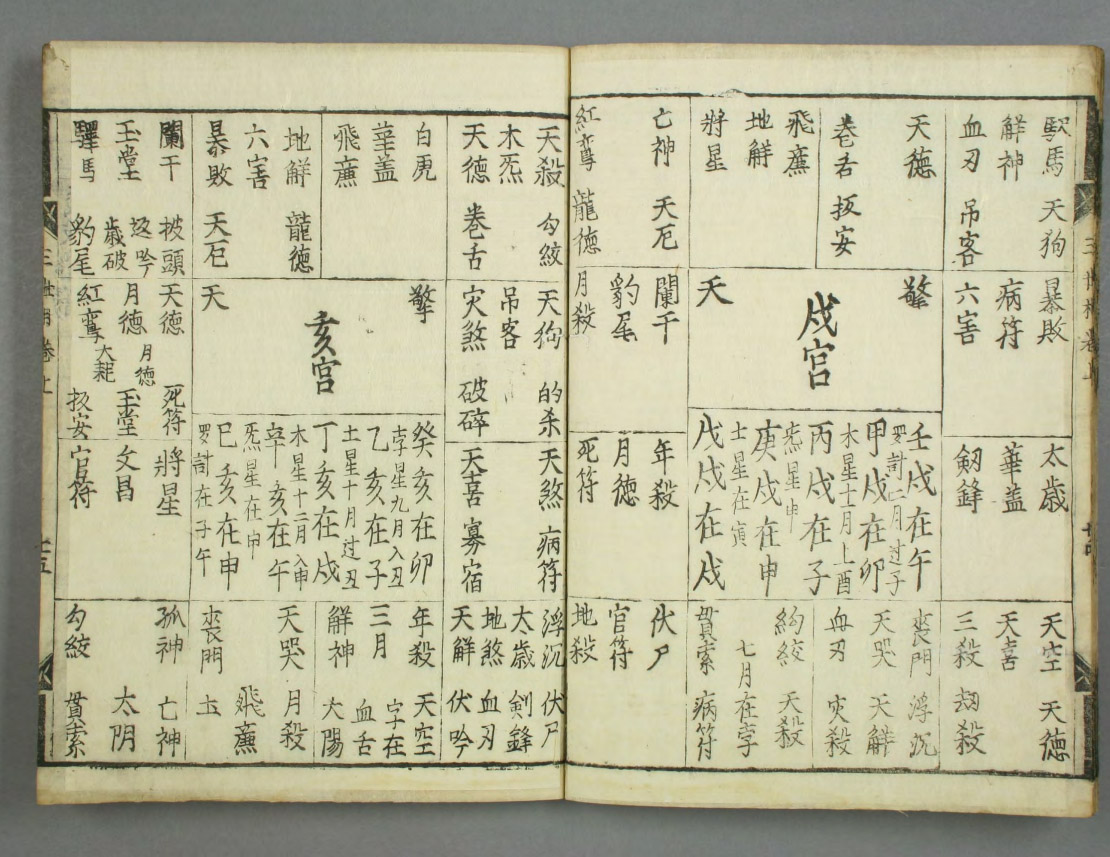 馹馬 天狗
解神
血刃 吊客
天德
卷舌 扳安
飛廉
地解
將星
亡神 天厄
紅鸞 龍德
暴敗
病符
六害
擎
戌宮
天
闌干
豹尾
月殺
太歲
華盖
劔鋒
壬戌在午
罗計二月过子
甲戌在卯
木星十二月上酉
丙戌在子
炁星申
庚戌在申
土星在寅
戊戌在戌
年殺
月德
死符
天空 天德
天喜
三殺 刼殺
喪門 浮沉
天哭 天解
血刃 灾殺
約絞 天殺
七月在孛
貫索 病符
伏尸
官符
地殺
天殺 勾絞
木炁
天德 卷舌
白虎
華盖
飛廉
地解 龍德
六害
暴敗 天厄
闌干 披頭
玉堂 歲破
驛馬 豹尾
天狗 的杀
吊客
灾煞 破碎
擎
亥宮
天
天德 死符
月德 月德 玉堂
紅鸞 大耗 扳安
天煞 病符
天喜 寡宿
癸亥在卯
孛星九月入丑
乙亥在子
土星十月过丑
丁亥在戌
木星十二月入申
辛亥在午
炁星在申
巳亥在申
罗計在子午
將星
文昌
官符
浮沉 伏尸
太歲 剣鋒
地煞 血刃
天解 伏吟
年殺 天空
三月 孛在
解神 血舌 太陽
天哭 月殺
飛廉
喪門 土
孤神 亡神
太阴
勾絞 貫索